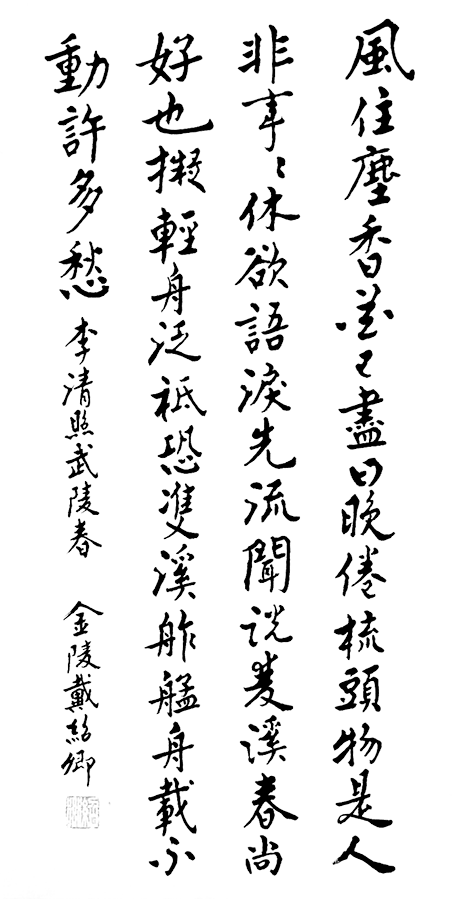 風住塵香花已盡日晚倦梳頭物是人
非事〻休欲語淚先流聞說雙溪春尚
好也擬輕舟泛祗恐雙溪舴艋舟載不
動許多愁
李清照武陵春 金陵戴紹卿